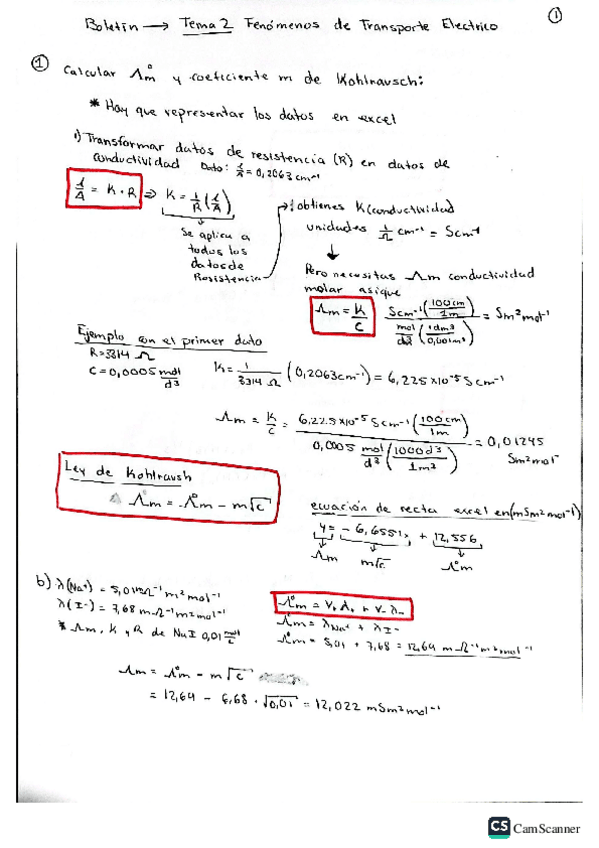 ①
Boletín → Tema 2 Fenómenos de Transporte Electrico
① Calcular Λ°m y coeficiente m de Kohlrausch:
* Hay que representar los datos en excel
1) Transformar datos de resistencia (R) en datos de
conductividad Dato: l/A = 0,2063 cm⁻¹
l/A = K · R ⇒ K = 1/R (l/A)
Se aplica a
todos los
datos de
Resistencia
obtienes K (conductividad)
unidades 1/Ω cm⁻¹ = S cm⁻¹
↓
Pero necesitas Λm conductividad
molar asi que
Λm = K/C
S cm⁻¹ (100 cm/1m) / mol/dm³ (1dm³/0,001m³) = S m² mol⁻¹
Ejemplo con el primer dato
R = 3314 Ω
C = 0,0005 mol/d³
K = 1/3314 Ω (0,2063 cm⁻¹) = 6,225 x10⁻⁵ S cm⁻¹
Λm = K/C = 6,225 x10⁻⁵ S cm⁻¹ (100 cm/1m) / 0,0005 mol/d³ (1000 d³/1m³) = 0,01245
S m² mol⁻
Ley de Kohlraush
Λm = Λ°m - m√c
ecuación de recta excel en (mSm² mol⁻¹)
y = - 6,6551x + 12,556
Λm m√c Λ°m
b) λ(Na⁺) = 5,01 mΩ⁻¹ m² mol⁻¹
λ(I⁻) = 7,68 m Ω⁻¹ m² mol⁻¹
* Λm, K y R de NaI 0,01 mol/L
Λ°m = ν₊ λ₊ + ν₋ λ₋
Λ°m = λNa⁺ + λI⁻
Λ°m = 5,01 + 7,68 = 12,64 m Ω⁻¹ m² mol⁻¹
Λm = Λ°m - m√c
= 12,64 - 6,68 · √0,01 = 12,022 mSm² mol⁻¹
CS CamScanner